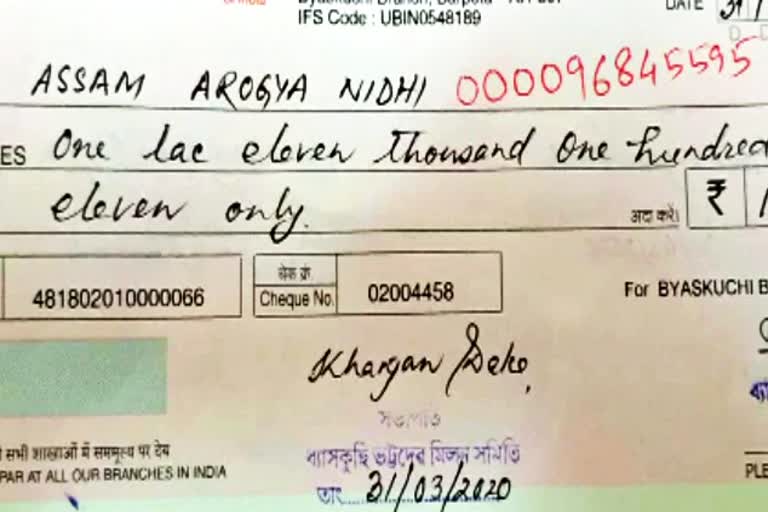 DATE 31
IFS Code : UBIN0548189
ASSAM AROGYA NIDHI 000096845595
ES One lac eleven thousand one hundred
eleven only. अदा करें। ₹ 1
481802010000066 चेक क्रं. Cheque No. 02004458
For BYASKUCHI B
Khargan Deka,
সভাপতি
सभी शाखाओं में सममूल्य पर देय
ব্যাসকুছি ভট্টদেৱ মিলন সমিতি
PAR AT ALL OUR BRANCHES IN INDIA
তাং 31/03/2020
PLE